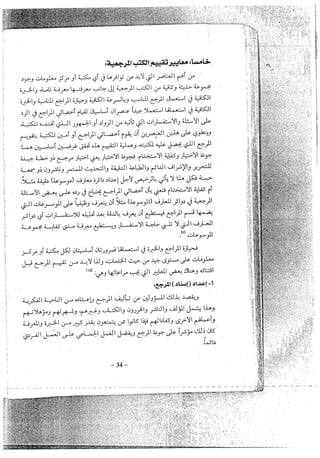 خامساً: معايير تقييم الكتب المرجعية:
من أهم العناصر التي لابد من توافرها في أي مكتبة أو مركز معلومات وجود
مجموعة حديثة وكافية من الكتب المرجعية إلى جانب معرفتها معرفة تامة، والخبرة
الكافية في استعمال المرجع المناسب وبالسرعة الكافية وحيازة المراجع المناسبة والخبرة
الكافية في استعمالها استعمالاً جيداً عنصران أساسيان لقيام أخصائي المراجع في الرد
على الأسئلة والاستفسارات التي تأتيه من الرواد أو الجمهور الذي تخدمه المكتبة،
وينطوي على هذين العنصرين أن يقوم أخصائي المراجع أو أمين المكتبة بتقويم
المرجع الذي يحصل عليه لمكتبته، وعملية التقييم هذه تحقق غرضين أساسيين هما:
جودة الاختيار وكفاية الاستخدام، فجودة الاختيار يعني اختيار مرجع ذو خطة جيدة
للتحرير والإشراف الدائم والطباعة الدقيقة والتحديث المستمر وناشرون ذو سمعة
حسنة فكل هذا لا يأتي بالرخيص لأجل إعداد دائرة معارف (موسوعة) طيبة مثلاً.
أم كفاية الاستخدام فتعني بأن أخصائي المراجع يحتاج في رده على بعض الأسئلة
المرجعية في دوائر المعارف (الموسوعة) مثلاً أن يتعرف وظيفياً على الموسوعات التي
يضمها قسم المراجع فيستطيع أن يعرف بالدقة بعد تحليله للاستفسارات أي دوائر
المعارف التي تلبي حاجة الاستفسار ويستطيع معرفة مدى كفاية مجموعة
الموسوعات
فحيازة المراجع والخبرة في استعمالها ضرورتان أساسيتان لكل مكتبة أو مركز
معلومات على مستوى جيد من حيث الخدمات، ولهذا لابد من تقييم المرجع قبل
اقتنائه وهناك بعض المعايير التي يجب مراعاتها وهي:
1- إعداد (إسناد) المرجع:
ويقصد بذلك المسؤولين عن تأليف المرجع وإعداده من الناحية الفكرية
وهذا يشمل المؤلف والناشر والمحررون والكتاب وغيرهم، وشهرتهم ومؤهلاتهم
وأعمالهم الأخرى وكفاءاتهم فإذا كانوا ممن يتمتعون بقدر كبير من الخبرة والمعرفة
كان ذلك مؤشراً على جودة المرجع ويفضل العمل الجماعي على العمل الفردي
دائماً.
- 34 -